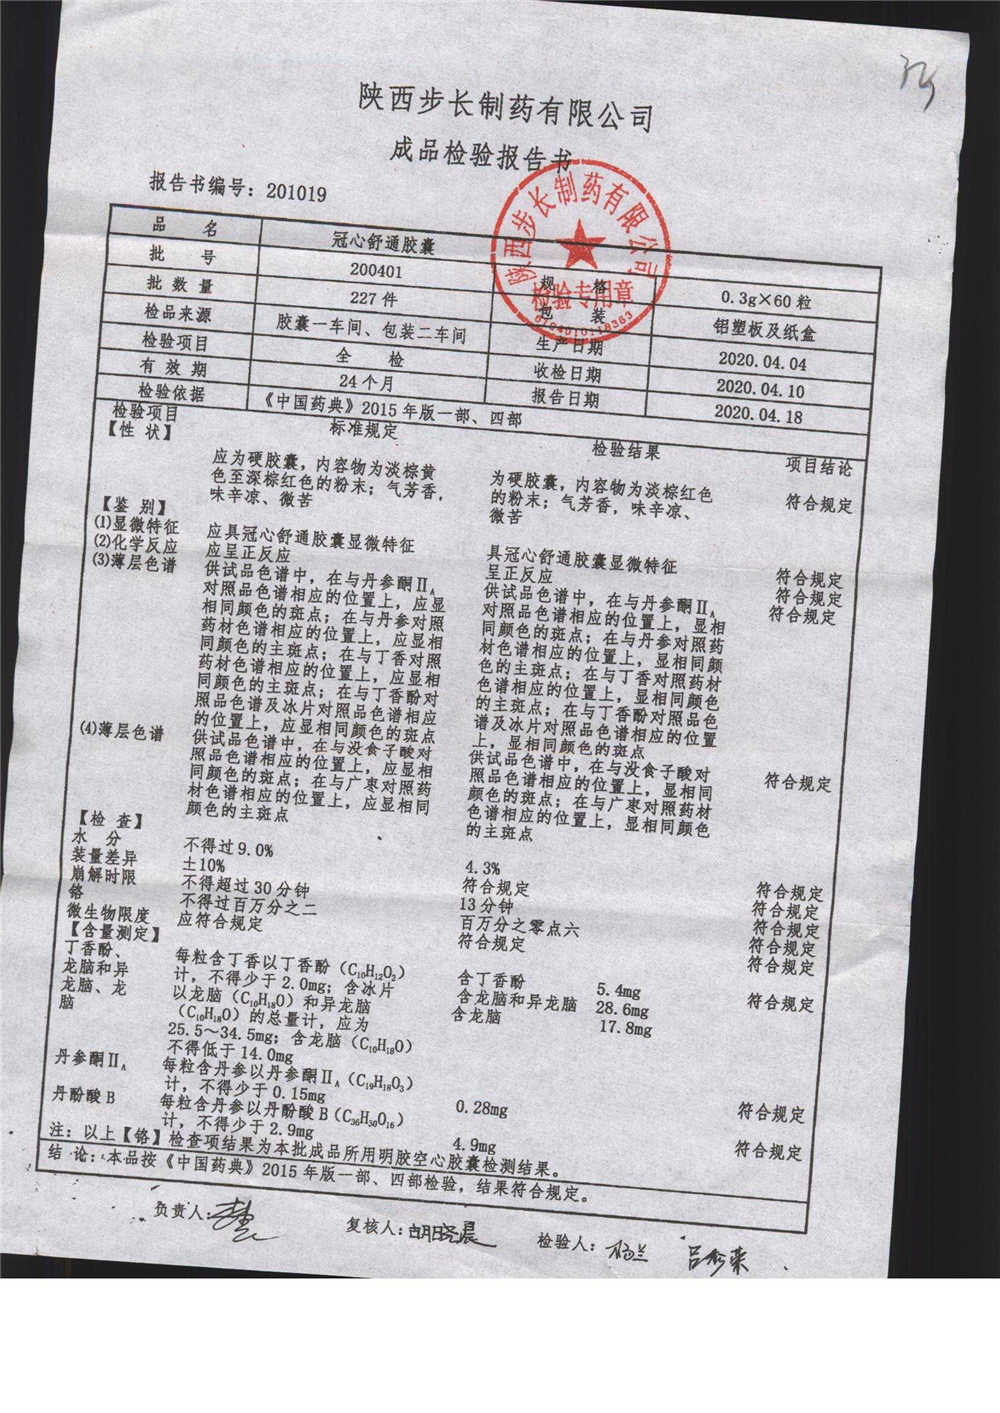 陕西步长制药有限公司
成品检验报告书
报告书编号：201019
陕西步长制药有限公司
检验专用章
品 名 冠心舒通胶囊
批 号 200401 规 格 0.3g×60粒
批数量 227件 包 装 铝塑板及纸盒
检品来源 胶囊一车间、包装二车间 生产日期 2020.04.04
检验项目 全 检 收检日期 2020.04.10
有 效 期 24个月 报告日期 2020.04.18
检验依据 《中国药典》2015年版一部、四部
检验项目 标准规定 检验结果 项目结论
【性 状】
应为硬胶囊，内容物为淡棕黄
色至深棕红色的粉末；气芳香，
味辛凉、微苦
为硬胶囊，内容物为淡棕红色
的粉末；气芳香，味辛凉、
微苦
符合规定
【鉴 别】
(1)显微特征 应具冠心舒通胶囊显微特征 具冠心舒通胶囊显微特征 符合规定
(2)化学反应 应呈正反应 呈正反应 符合规定
(3)薄层色谱
供试品色谱中，在与丹参酮ⅡA
对照品色谱相应的位置上，应显
相同颜色的斑点；在与丹参对照
药材色谱相应的位置上，应显相
同颜色的主斑点；在与丁香对照
药材色谱相应的位置上，应显相
同颜色的主斑点；在与丁香酚对
照品色谱及冰片对照品色谱相应
的位置上，应显相同颜色的斑点
供试品色谱中，在与丹参酮ⅡA
对照品色谱相应的位置上，显相
同颜色的斑点；在与丹参对照药
材色谱相应的位置上，显相同颜
色的主斑点；在与丁香对照药材
色谱相应的位置上，显相同颜色
的主斑点；在与丁香酚对照品色
谱及冰片对照品色谱相应的位置
上，显相同颜色的斑点
符合规定
(4)薄层色谱
供试品色谱中，在与没食子酸对
照品色谱相应的位置上，应显相
同颜色的斑点；在与广枣对照药
材色谱相应的位置上，应显相同
颜色的主斑点
供试品色谱中，在与没食子酸对
照品色谱相应的位置上，显相同
颜色的斑点；在与广枣对照药材
色谱相应的位置上，显相同颜色
的主斑点
符合规定
【检 查】
水 分 不得过9.0% 4.3% 符合规定
装量差异 ±10% 符合规定 符合规定
崩解时限 不得超过30分钟 13分钟 符合规定
铬 不得过百万分之二 百万分之零点六 符合规定
微生物限度 应符合规定 符合规定 符合规定
【含量测定】
丁香酚、
龙脑和异
龙脑、龙
脑
每粒含丁香以丁香酚（C10H12O2）
计，不得少于2.0mg；含冰片
以龙脑（C10H18O）和异龙脑
（C10H18O）的总量计，应为
25.5～34.5mg；含龙脑（C10H18O）
不得低于14.0mg
含丁香酚 5.4mg
含龙脑和异龙脑 28.6mg
含龙脑 17.8mg
符合规定
丹参酮ⅡA
每粒含丹参以丹参酮ⅡA（C19H18O3）
计，不得少于0.15mg
0.28mg 符合规定
丹酚酸B
每粒含丹参以丹酚酸B（C36H30O16）
计，不得少于2.9mg
4.9mg 符合规定
注：以上【铬】检查项结果为本批成品所用明胶空心胶囊检测结果。
结 论：本品按《中国药典》2015年版一部、四部检验，结果符合规定。
负责人： 复核人：胡晓晨 检验人：杨兰